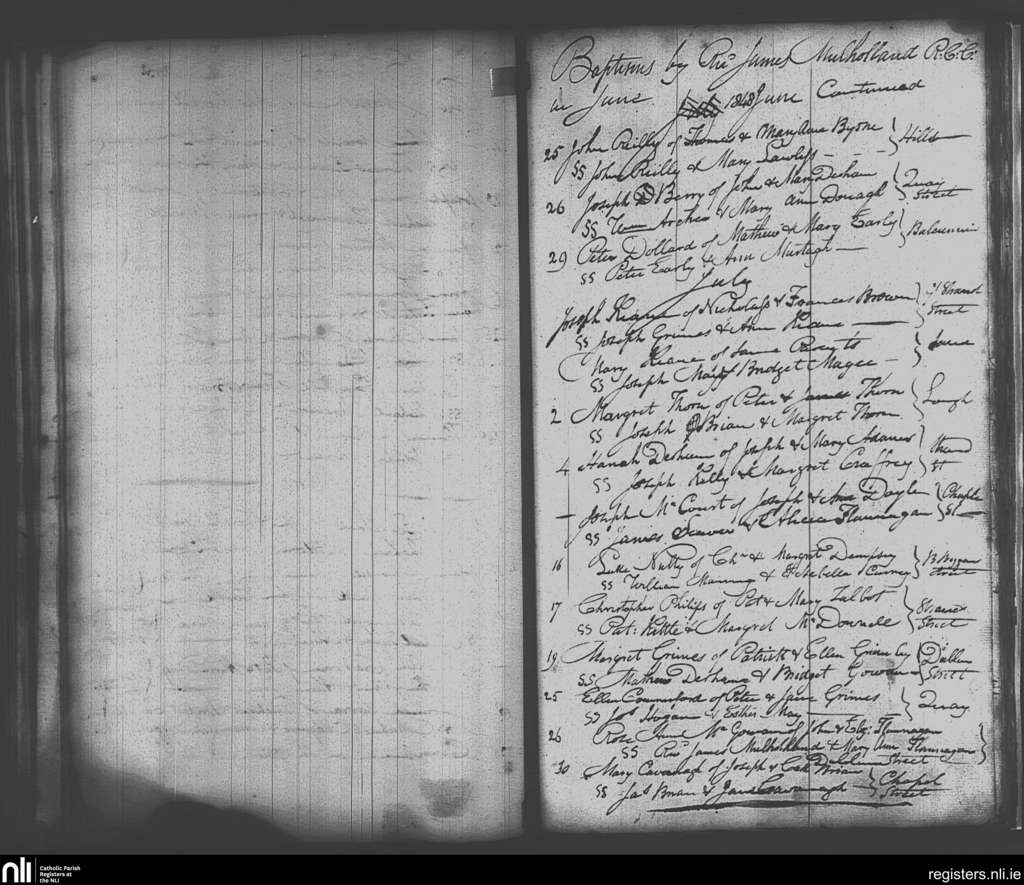 Baptisms by Rev James Mulholland R.C.C.
in June 1848 June Continued
25 John Reilly of Thomas & MaryAnn Byrne } Hills
SS John Reilly & Mary Lawless
26 Joseph D Berry of John & Mary Desham } Quay Street
SS Wm Archer & Mary Ann Donagh
29 Peter Dollard of Mathew & Mary Early }
SS Peter Early & Ann Murtagh
July
Joseph Keane of Nicholass & Frances Brown } Strand Street
SS Joseph Grimes & Ann Keane
Mary Keane of same Parents } Same
SS Joseph & Bridget Magee
2 Margret Thorn of Peter & James Thorn } Lough
SS Joseph OBrian & Margret Thorn
4 Hanah Desham of Joseph & Mary Adams } Strand St
SS Joseph Kelly & Margret Caffrey
— Joseph McCourt of Joseph & Ann Doyle } Chaple St
SS James Seaver & Alicia Flannagan
16 Luke Nulty of Chr & Margret Dempsey } Street
SS William Manning & Isabella Carney
17 Christopher Philips of Pat & Mary Talbot } Strand Street
SS Pat: Kettle & Margret McDonnell
19 Margret Grimes of Patrick & Ellen Grimley } Dublin Street
SS Mathew Deshame & Bridget Gowan
25 Ellen Commerford of Peter & Jane Grimes } Quay
SS Jos Hogan & Esther May
26 Rose Ann McGowan of John & Eliz: Flannagan
SS Rev James Mulholland & Mary Ann Flannagan }
Dublin Street
30 Mary Cavanagh of Joseph & Cath Brian } Chapel Street
SS Jas Brian & Jane Cavanagh
nli
Catholic Parish
Registers at
the NLI
registers.nli.ie